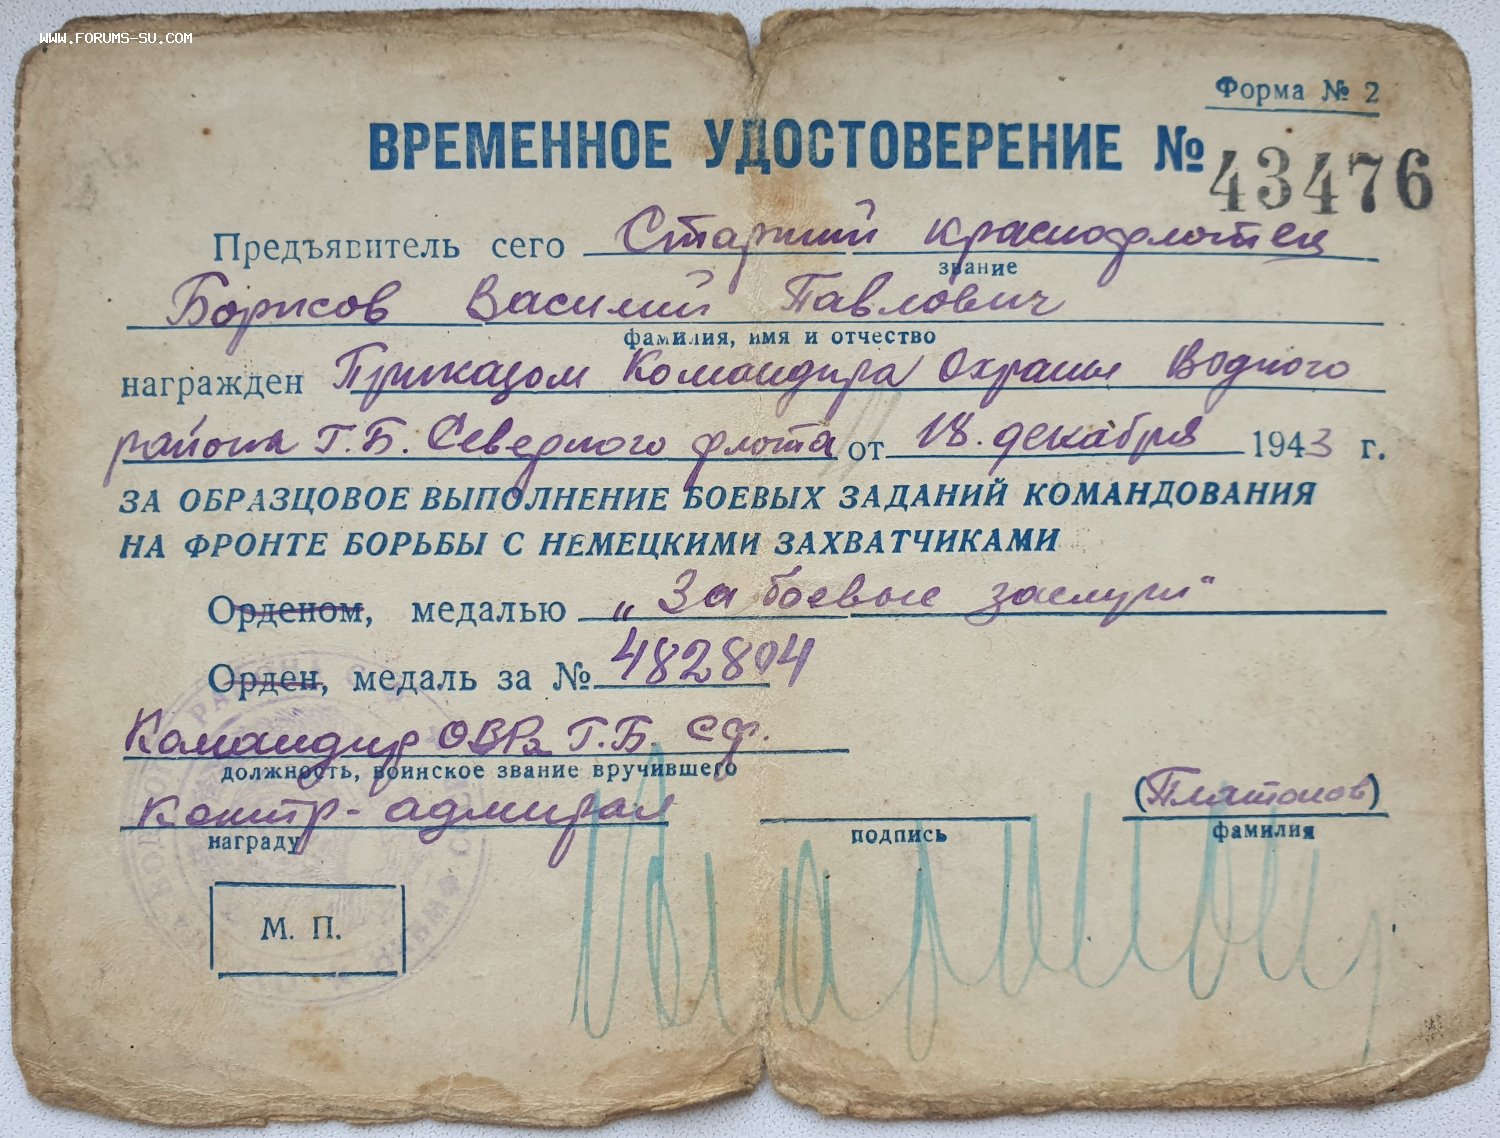 WWW.FORUMS-SU.COM
Форма № 2
ВРЕМЕННОЕ УДОСТОВЕРЕНИЕ № 43476
Предъявитель сего Старший краснофлотец
звание
Борисов Василий Павлович
фамилия, имя и отчество
награжден Приказом Командира Охраны Водного
района Г.Б. Северного флота от 18. декабря 1943 г.
ЗА ОБРАЗЦОВОЕ ВЫПОЛНЕНИЕ БОЕВЫХ ЗАДАНИЙ КОМАНДОВАНИЯ
НА ФРОНТЕ БОРЬБЫ С НЕМЕЦКИМИ ЗАХВАТЧИКАМИ
Орденом, медалью „За боевые заслуги"
Орден, медаль за № 482804
Командир ОВРа Г.Б. СФ.
должность, воинское звание вручившего
контр-адмирал (Платонов)
награду подпись фамилия
М. П.